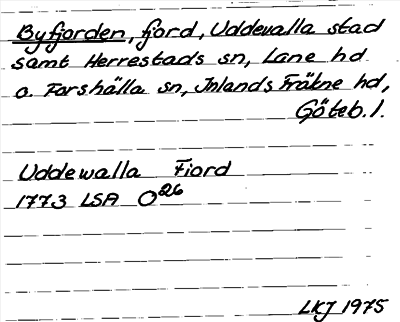 Byfjorden, fjord, Uddevalla stad
samt Herrestads sn, Lane hd
o. Forshälla sn, Inlands Fräkne hd,
Göteb. l.
Uddewalla Fiord
1773 LSA O26
LKJ 1975